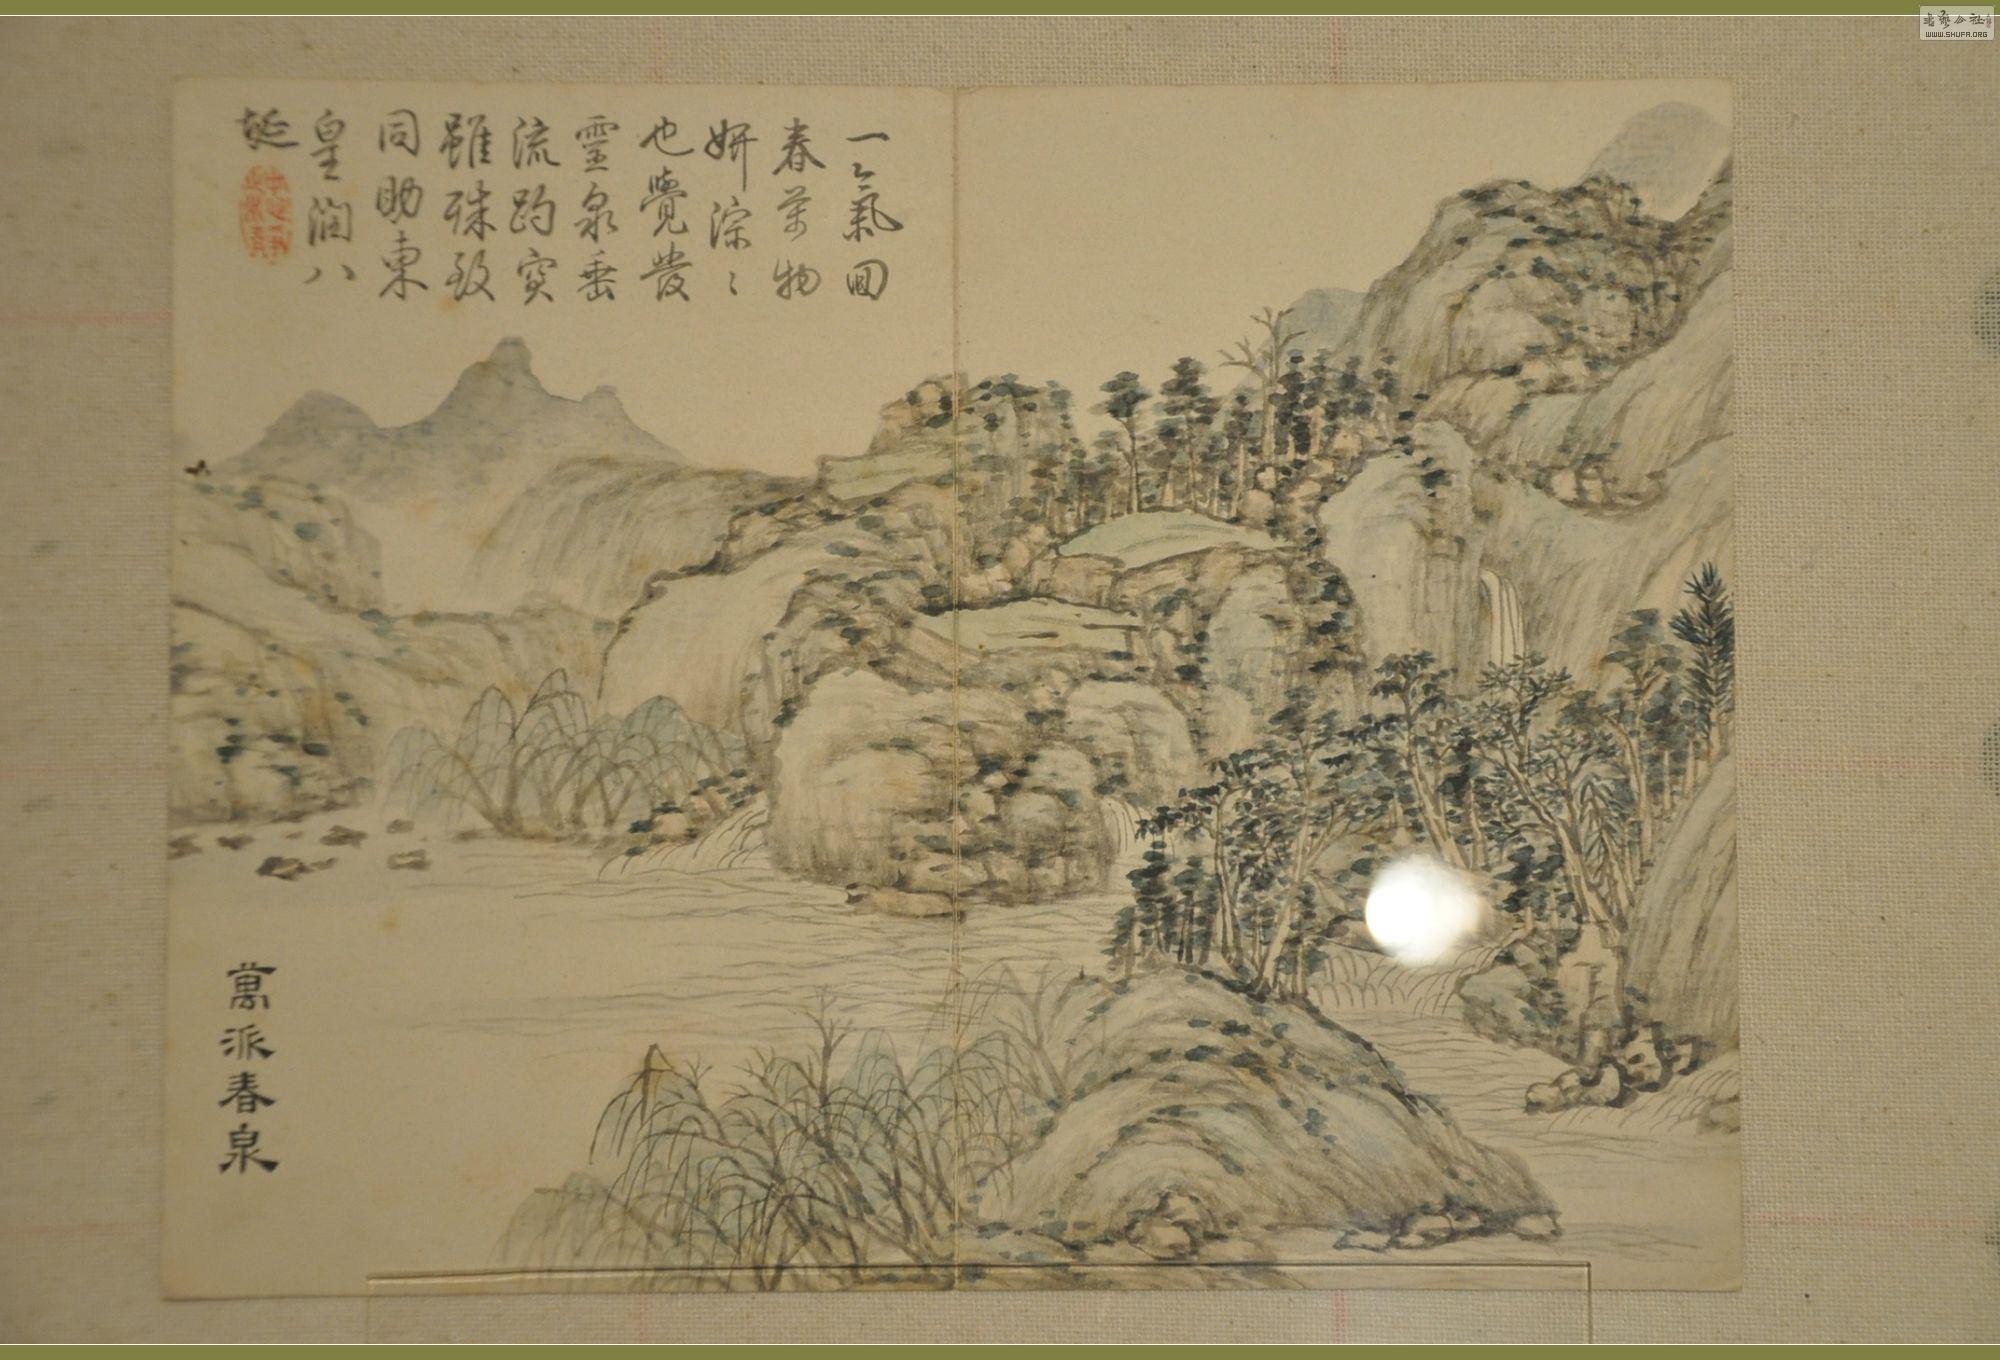 一氣回
春萬物
妍淙〻
也覺發
靈泉垂
流趵突
雖殊致
同助東
皇潤八
埏
萬派春泉
WWW.SHUFA.ORG